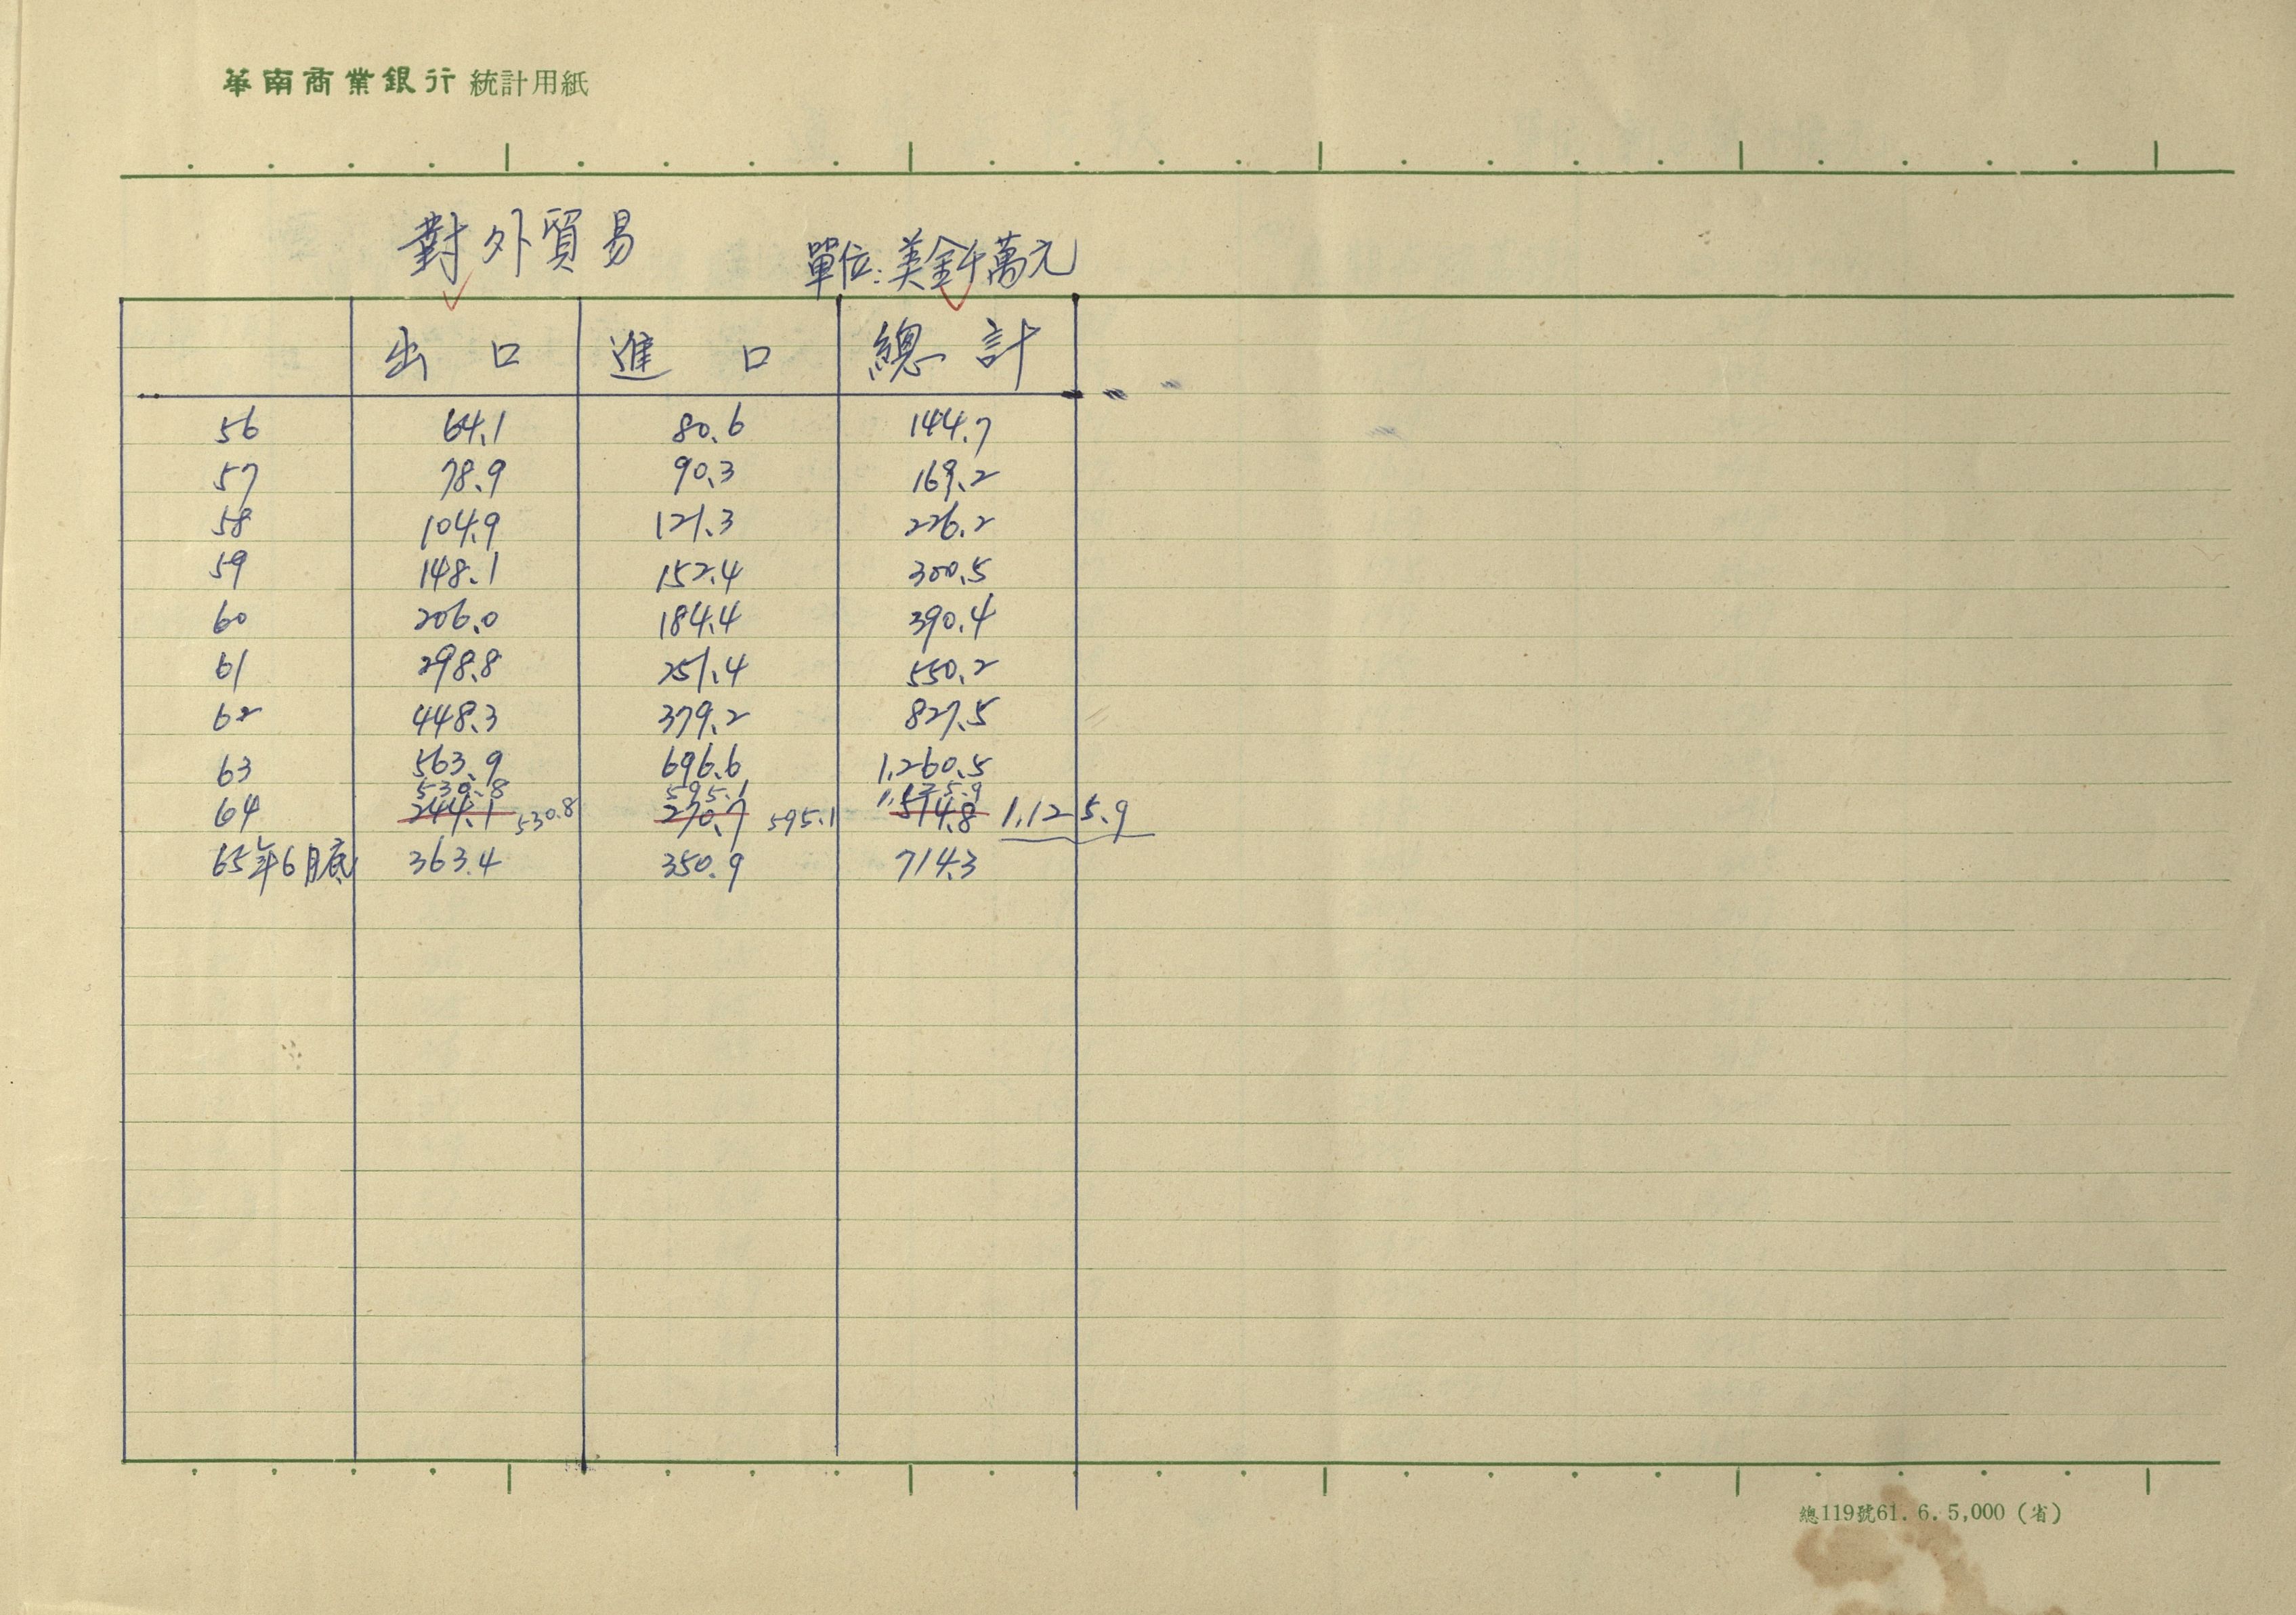 華南商業銀行 統計用紙
對外貿易 單位:美金千萬元
出口 進口 總計
56 64.1 80.6 144.7
57 78.9 90.3 169.2
58 104.9 121.3 226.2
59 148.1 152.4 300.5
60 206.0 184.4 390.4
61 298.8 251.4 550.2
62 448.3 379.2 827.5
63 563.9 696.6 1,260.5
530.8 595.1 1,125.9
64 244.1 530.8 270.7 595.1 514.8 1,125.9
65年6月底 363.4 350.9 714.3
總119號61. 6. 5,000 (省)